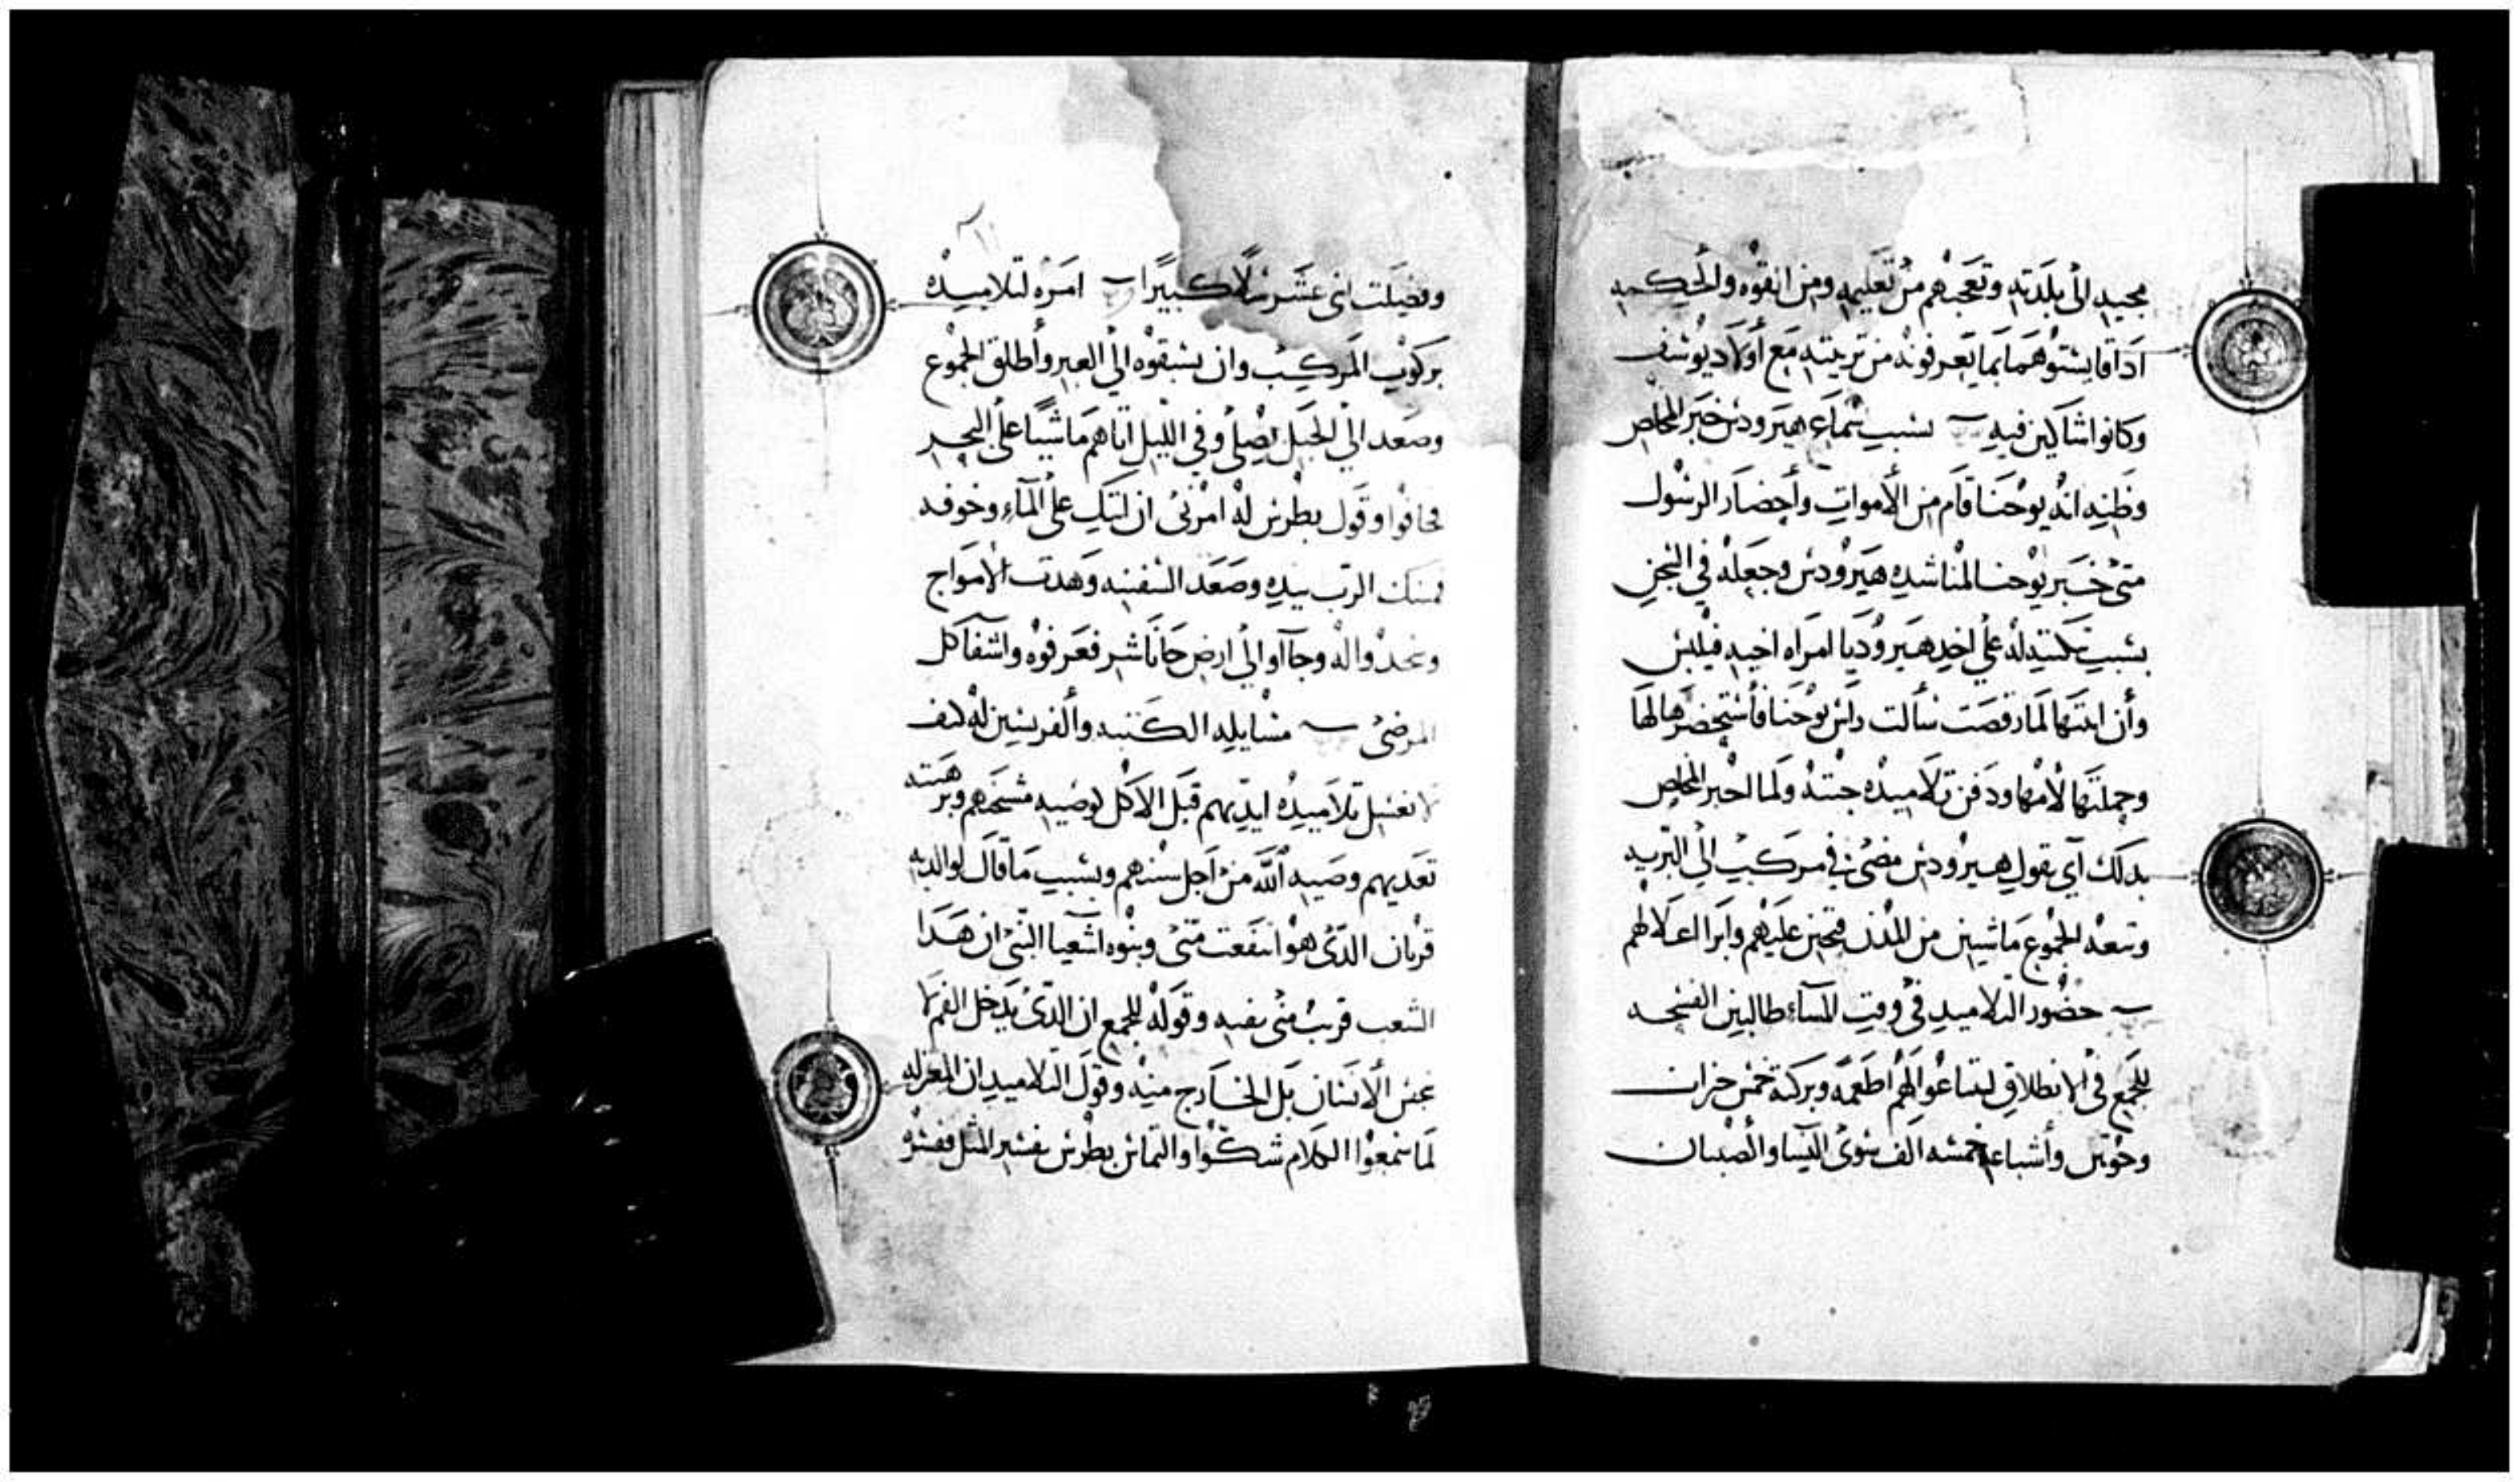 مجيه الى بلدته وتعجبهم من تعليمه ومن القوه والحكمه
وكانوا شاكين فيه بسبب سماع هيرودس خبر المخلص
وظنه انه يوحنا قام من الأموات وأحضار الرسول
متى خبر يوحنا المناشده هيرودس وجعله في السجن
بسبب تكتيده على اخد هيروديا امراه اخيه فيلبس
وأن ابنتها لما رقصت سألت راس يوحنا فأستحضرها لها
وحملتها لأمها ودفن تلاميده جتته ولما اخبر المخلص
بدلك آي بقول هيرودس مضى في مركب الى البريه
وتبعه الجموع ماشيين من المدن فتحنن عليهم وابرا اعلالهم
حضور التلاميد في وقت المساء طالبين الفسحه
للجمع في الانطلاق ليبتاعوا لهم اطعمه وبركة خمس خبزات
وحوتين وأشباعه خمسه الف سوى النسا والصبيان
٢١
وفضلت اتنى عشر سلا كبيرا امره لتلاميده
بركوب المركب وان يسبقوه الى العبر وأطلق الجموع
وصعد الى الجبل يصلى وفي الليل اتاهم ماشيا على البحر
فخافوا وقول بطرس له امرنى ان اتيك على المآء وخوفه
فمسك الرب بيده وصعد السفينه وهدت الامواج
وسجدوا له وجآاوا الى ارض جاناشر فعرفوه واشفا كل
المرضى مسايله الكتبه والفريسين له كيف
لا تغسل تلاميده ايديهم قبل الاكل لوصيه مشيختهم وبرهنته
تعديهم وصيه الله من اجل سنتهم وبسبب ما قال لوالديه
قربان الدى هوا انتفعت منى وبنوه اشعيا النبى ان هدا
الشعب قريب منى بفيه وقوله للجمع ان الدى يدخل الفم لا
ينجس الأنسان بل الخارج منه وقول التلاميد ان المعتزله
لما سمعوا الكلام شكوا والتماس بطرس بفسر المثل ففسره